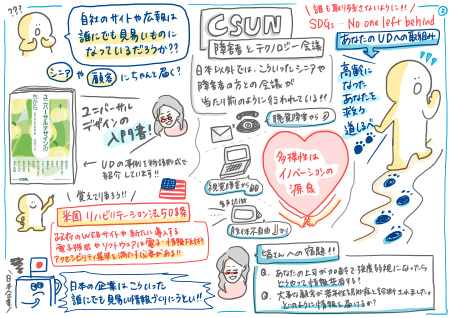 ???
自社のサイトや広報は
誰にでも見易いものに
なっているだろうか??
シニアや顧客にちゃんと届く?
ユニバーサルデザインの
ちから
ユニバーサル
デザインの
入門書!
← UDの事例を物語形式で
紹介しています!!
覚えて帰ろう!!
米国リハビリテーション法508条
政府のWEBサイトや新たに導入する
電子機器やソフトウェアは電子・情報技術
アクセシビリティ基準を満たす必要がある!!
日本企業
日本の企業はこういった
誰にでも見易い情報づくりにうとい!!
CSUN
障害者とテクノロジー会議
日本以外では、こういったシニアや
障害者の方との会議が
当たり前のように行われている!!
聴覚障害から
視覚障害から
肢体不自由から
多様性は
イノベーションの
源泉
誰も取り残さないように!!
SDGs - No one left behind
②
あなたのUDへの取組み
高齢に
なった
あなたを
救う
道しるべ
皆さんへの宿題!!
Q. あなたの上司が加齢で強度弱視になったら
どうやって情報共有する?
Q. 大事な顧客が若年性認知症と診断されました。
どのように情報を届けるか?